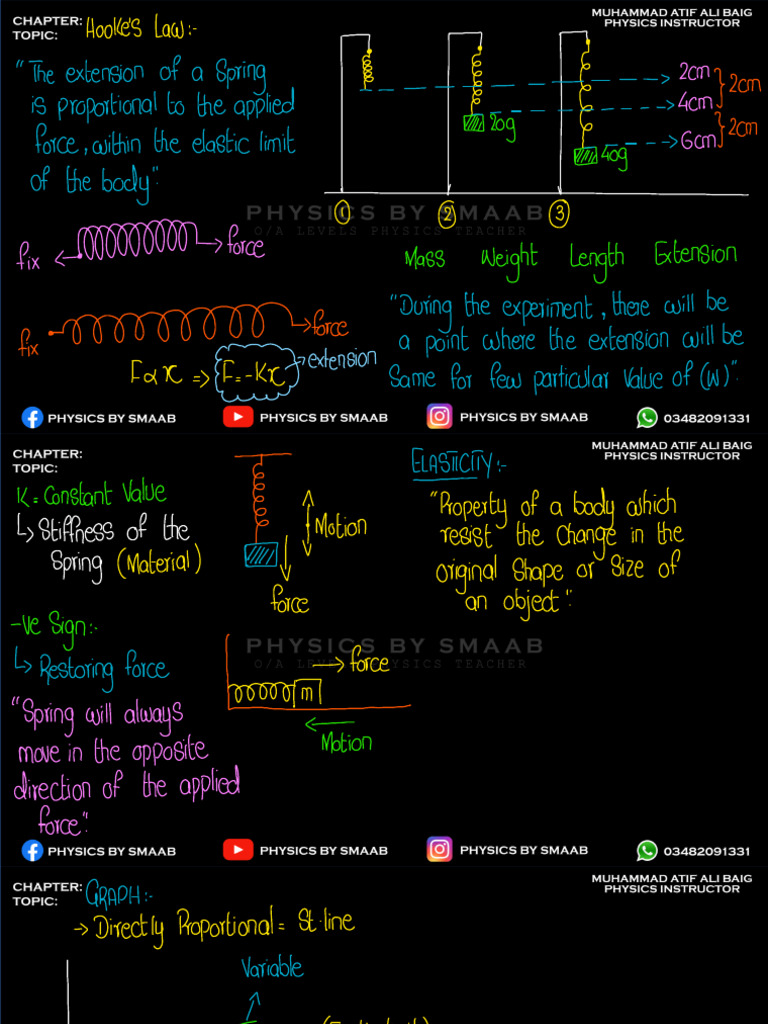 CHAPTER:
TOPIC:
Hooke's Law:-
MUHAMMAD ATIF ALI BAIG
PHYSICS INSTRUCTOR
"The extension of a Spring
is proportional to the applied
force, within the elastic limit
of the body"
2cm
4cm
6cm
2cm
2cm
20g
40g
1
2
3
PHYSICS BY SMAAB
O/A LEVELS PHYSICS TEACHER
fix
force
fix
force
F∝x => F=-Kx
extension
Mass Weight Length Extension
"During the experiment, there will be
a point where the extension will be
Same for few particular value of (W)".
PHYSICS BY SMAAB
PHYSICS BY SMAAB
PHYSICS BY SMAAB
03482091331
CHAPTER:
TOPIC:
MUHAMMAD ATIF ALI BAIG
PHYSICS INSTRUCTOR
K = Constant Value
↳ Stiffness of the
Spring (Material)
Motion
force
ELASTICITY:-
"Property of a body which
resist the change in the
original Shape or Size of
an object".
-ve Sign:-
↳ Restoring force
"Spring will always
move in the opposite
direction of the applied
force".
PHYSICS BY SMAAB
O/A LEVELS PHYSICS TEACHER
force
m
Motion
PHYSICS BY SMAAB
PHYSICS BY SMAAB
PHYSICS BY SMAAB
03482091331
CHAPTER:
TOPIC:
GRAPH:-
MUHAMMAD ATIF ALI BAIG
PHYSICS INSTRUCTOR
→ Directly Proportional = St.line
Variable